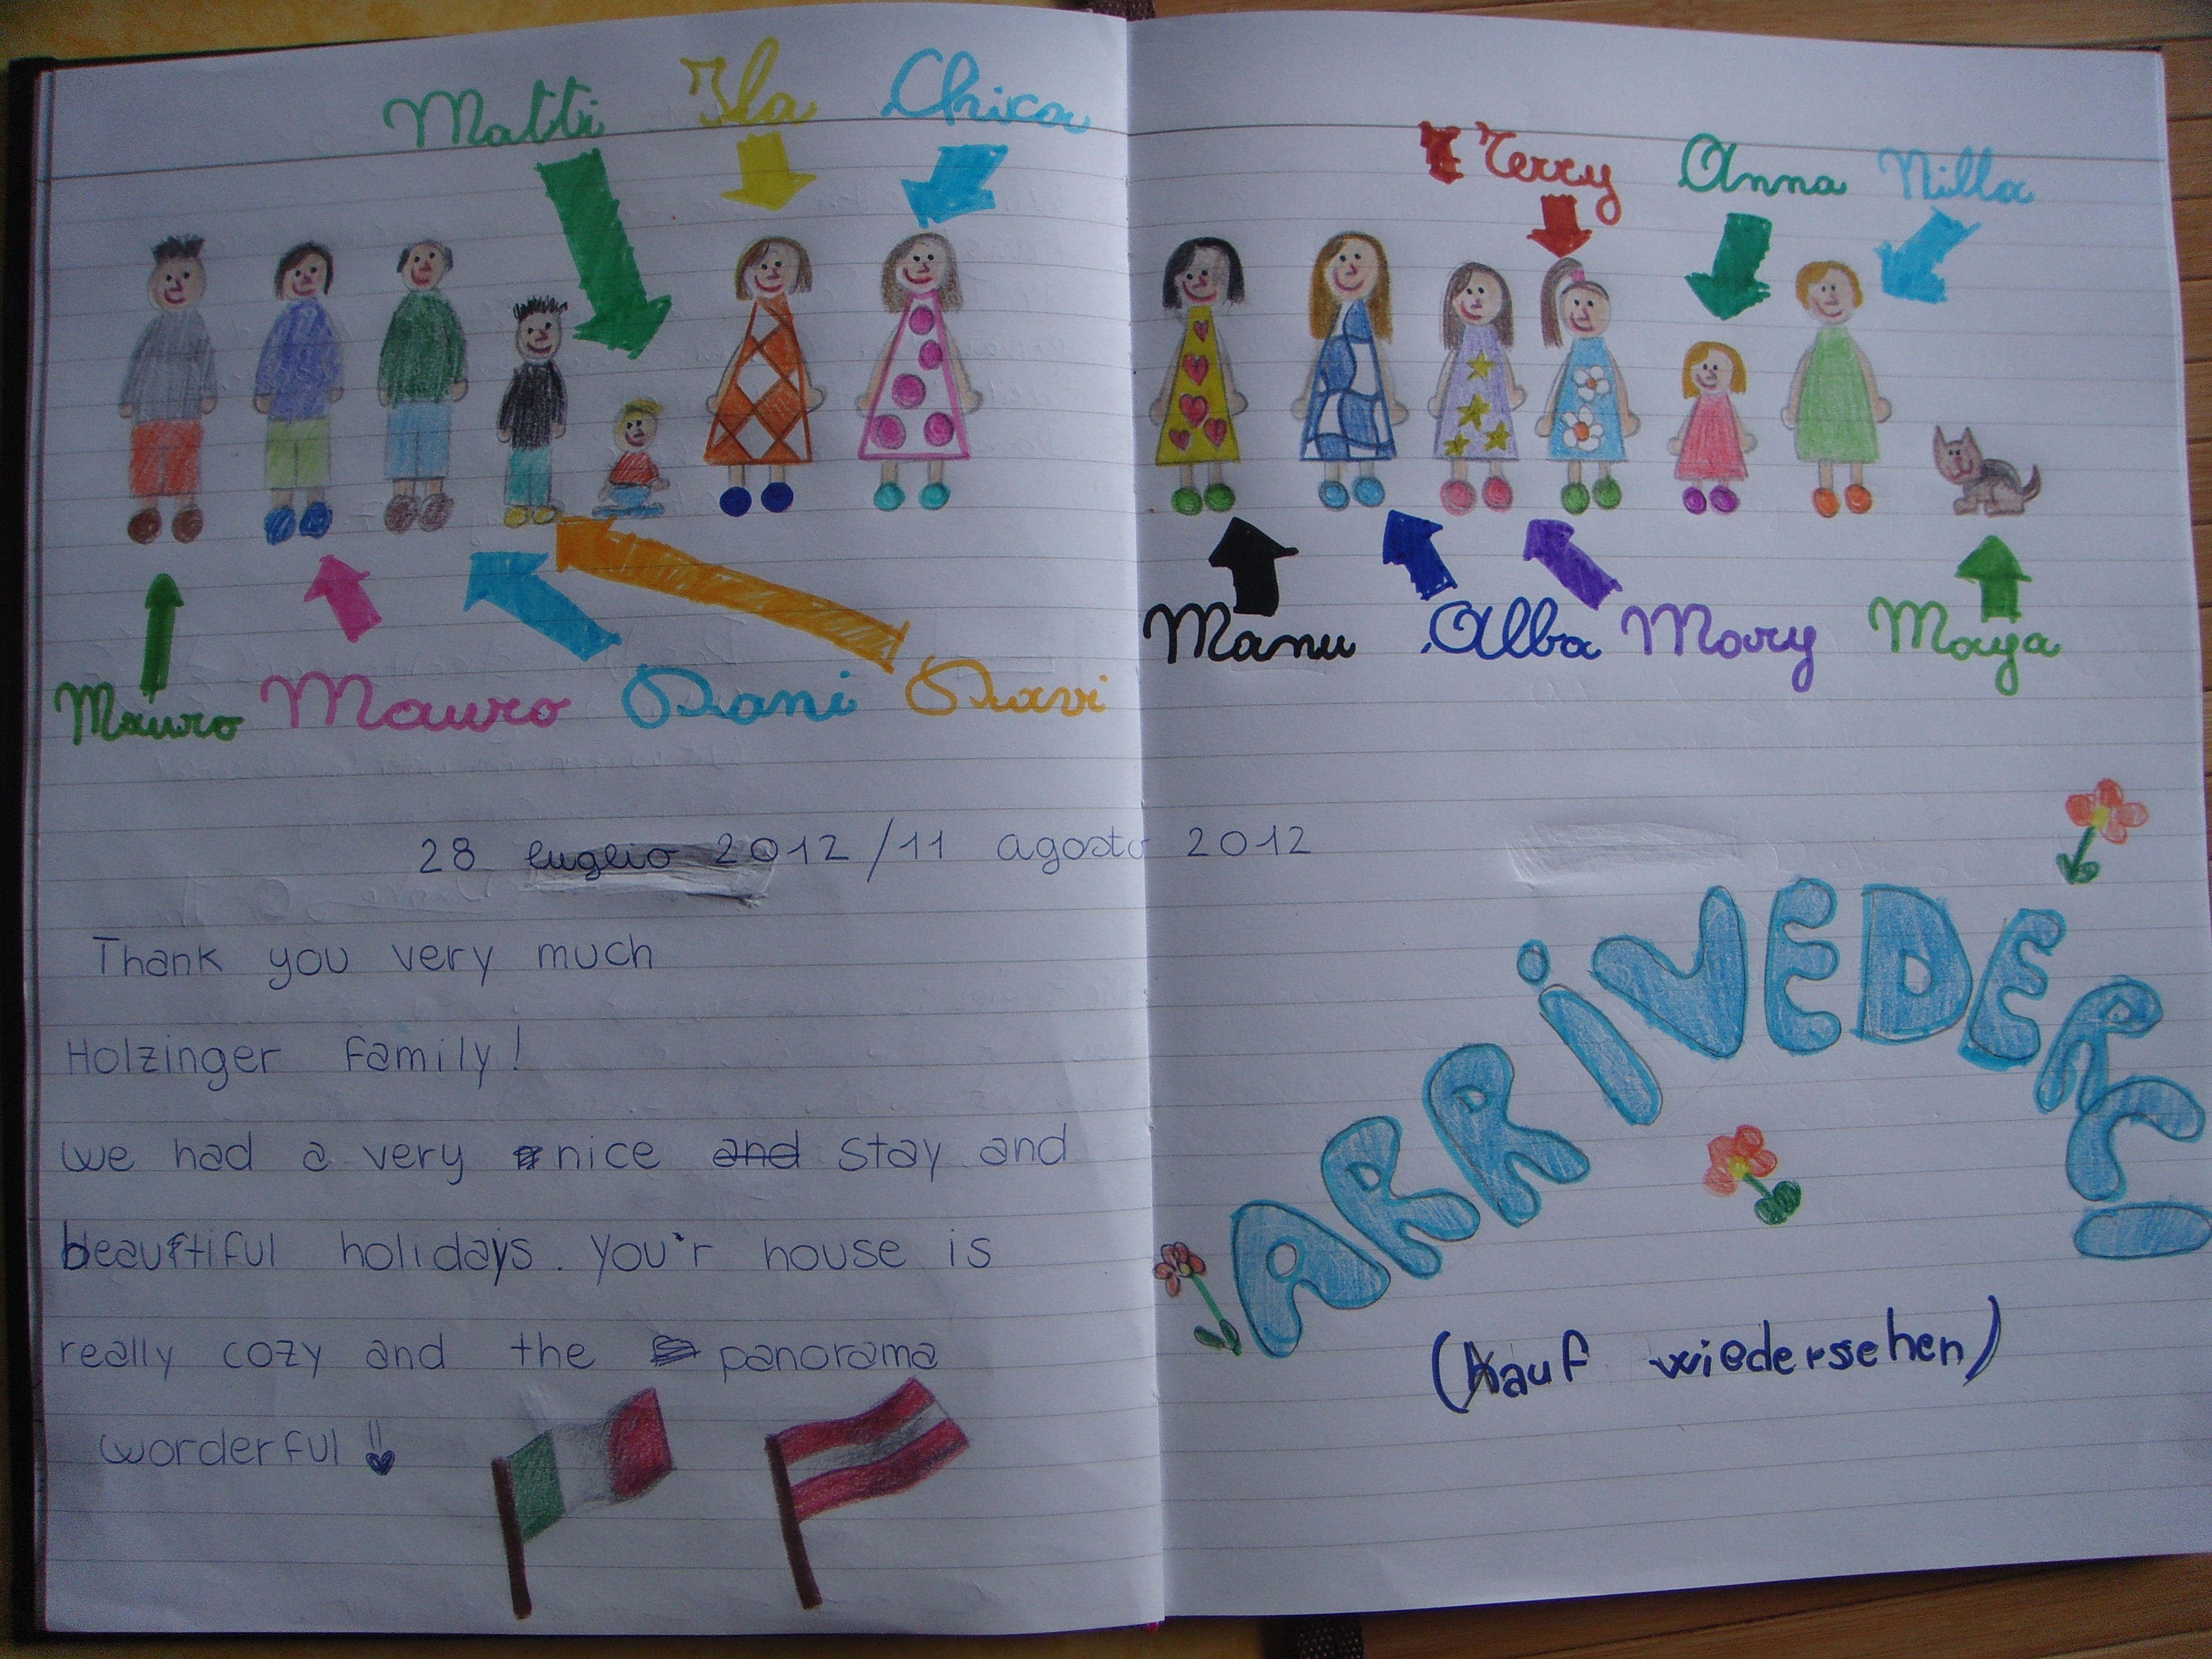 Matti Ila Chicca
Mauro Mauro Dani Davi
Terry Anna Nilla
Manu Alba Mary Maya
28 luglio 2012 / 11 agosto 2012
Thank you very much
Holzinger Family!
We had a very nice and stay and
beautiful holidays. You'r house is
really cozy and the panorama
worderful !!
ARRiVEDERCI
(auf wiedersehen)